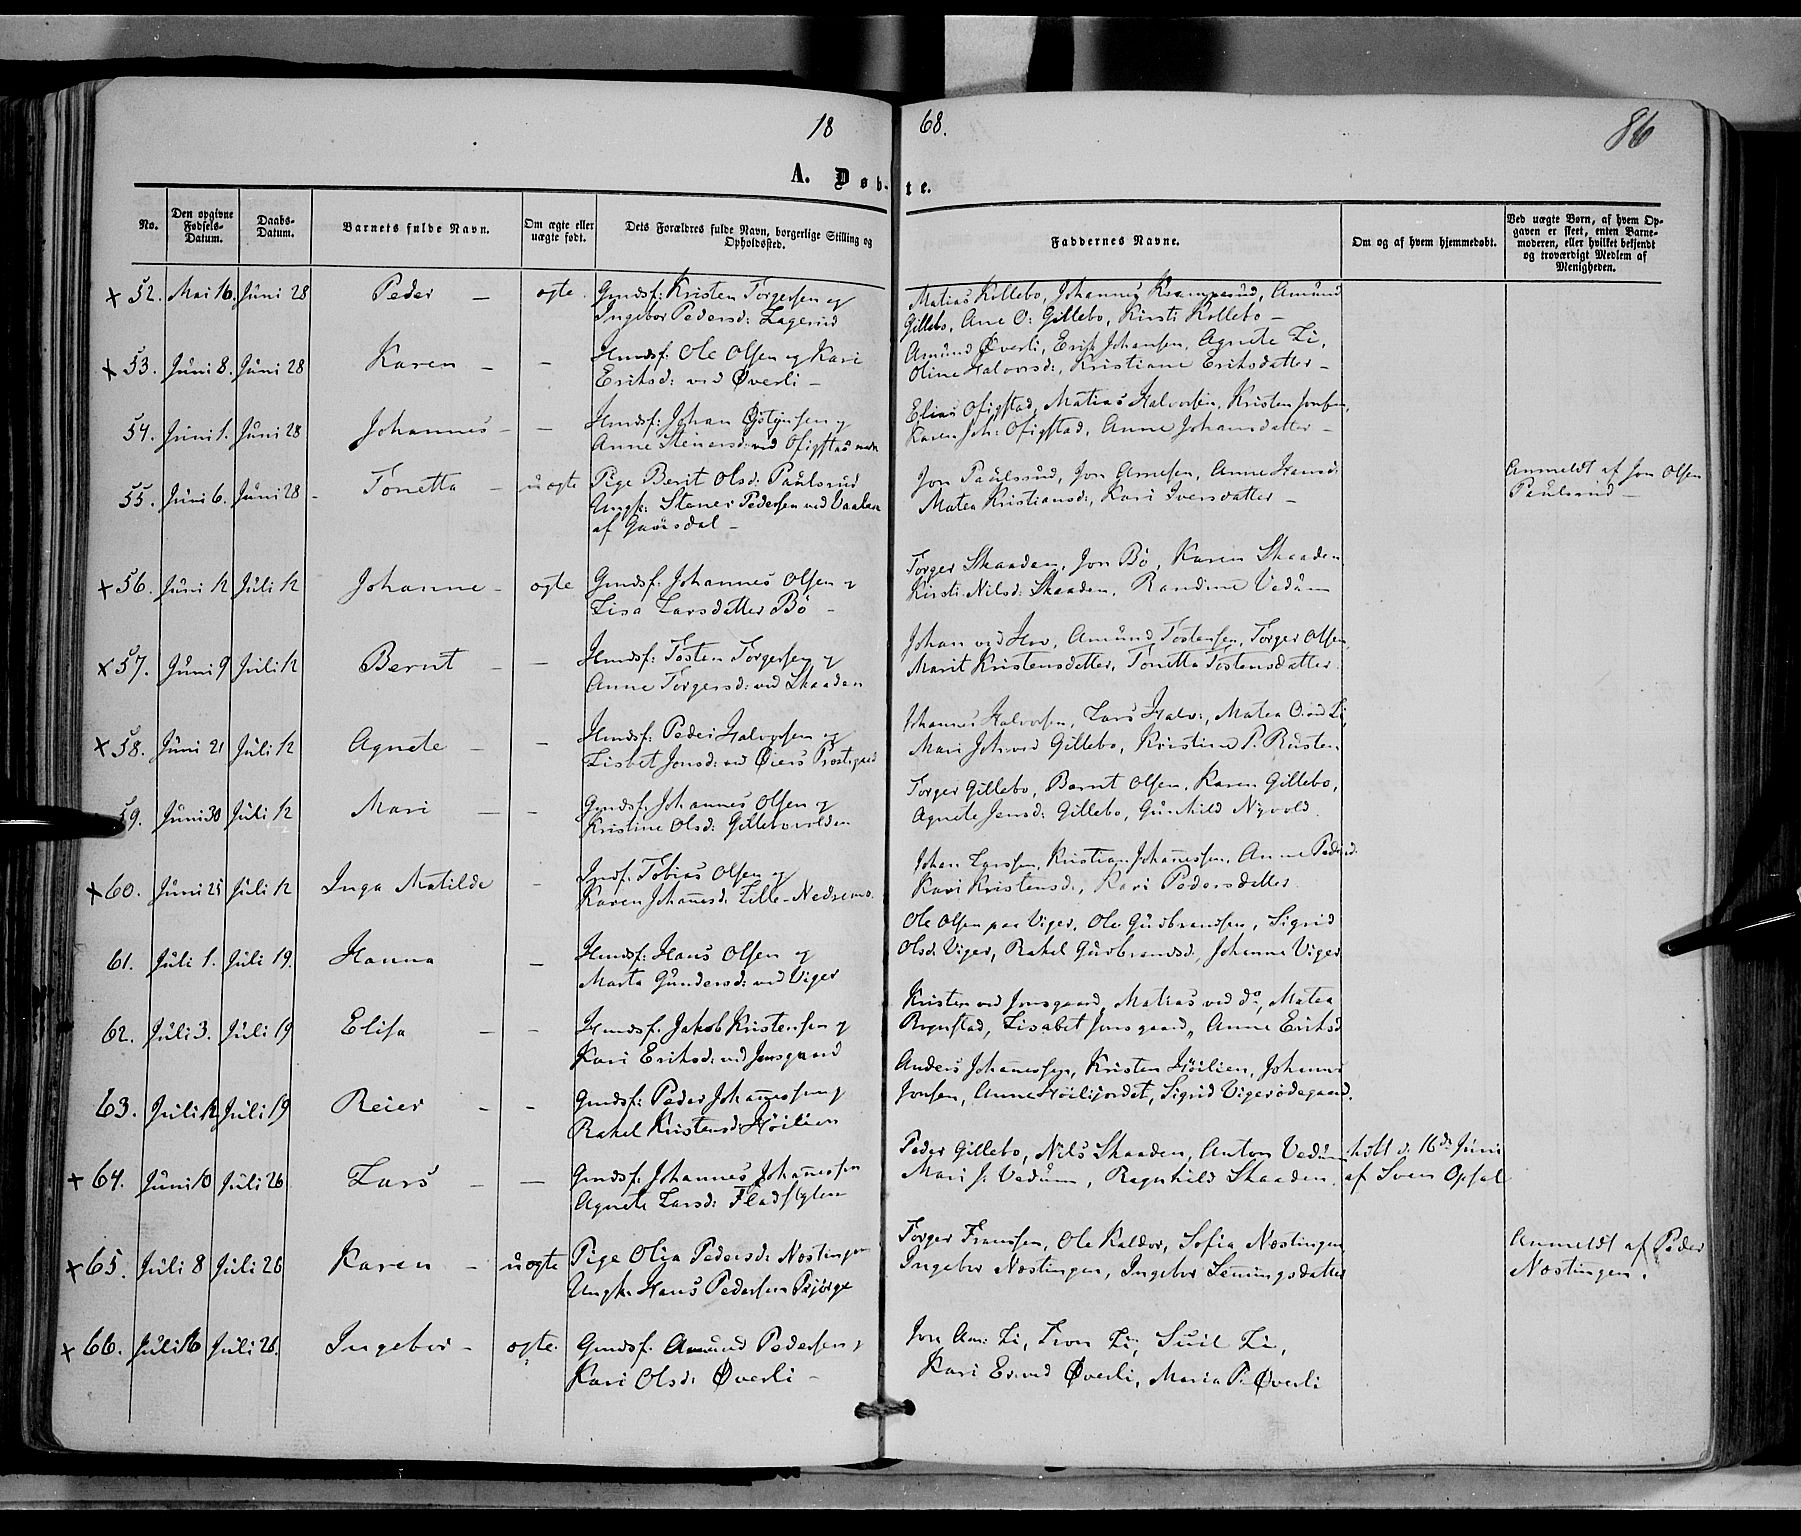 1868.
86
A. Døbte.
No.
Den opgivne Fødsels-Datum.
Daabs-Datum.
Barnets fulde Navn.
Om ægte eller uægte født.
Dets Forældres fulde Navn, borgerlige Stilling og Opholdssted.
Faddernes Navne.
Om og af hvem hjemmedøbt.
Ved uægte Børn, af hvem Opgaven er skeet, enten Barnemoderen, eller hvilket bekjendt og troværdigt Medlem af Menigheden.
x 52. Mai 16. Juni 28 Peder - ægte. Gmdsf: Kristen Torgersen og Matias Kollebo, Johannes, Amund
Ingebor Pedersd: Lagerud Gillebo, Ane O: Gillebo, Kirsti Kollebo -
x 53. Juni 8. Juni 28 Karen - - Hmdsf: Ole Olsen og Kari Amund Øverli, Erik Johansen, Agnete Li,
Eriksd: ved Øverli - Oline Halvorsd:, Kristiane Eriksdatter -
54. Juni 1. Juni 28 Johannes - - Hmdsf: Johan Østensen og Elias Ofigstad, Matias Halvorsen, Kristen Jonsen,
Anne Steinersd: ved Ofigstad Karen Joh: Ofigstad, Anne Johansdatter -
55. Juni 6. Juni 28 - Tonetta - uægte Pige Berit Olsd: Paulsrud Jon Paulsrud, Jon Arnesen, Anne Hansd: Anmeldt af Jon Olsen
Ungk: Stener Pedersen ved Vaalen Matea Kristiansd:, Kari Iversdatter - Paulsrud -
af Gausdal -
x 56. Juni 12 Juli 12 Johanne - ægte Gmdsf: Johannes Olsen og Torger Skaaden, Jon Bö, Karen Skaaden
Lisa Larsdatter Bö - Kirsti Nilsd: Skaaden, Randine Vedum
x 57. Juni 9 Juli 12 Bernt - - Hmdsf: Tosten Torgersen og Johan ved Hov, Amund Tostensen, Torger Olsen,
Anne Torgersd: ved Skaaden Marit Kristensdatter, Tonetta Tostensdatter
x 58. Juni 21 Juli 12 Agnete - - Hmdsf: Peder Halvorsen og Johannes Halvorsen, Lars Halv:, Matea O: ved Li,
Lisbet Jonsd: ved Øiers Prestegaard Mari Joh: ved Gillebo, Kristine P. Rusten
59. Juni 30 Juli 12 Mari - - Gmdsf: Johannes Olsen og Torger Gillebo, Bernt Olsen, Karen Gillebo,
Kristine Olsd: Gillebovolden Agnete Jensd: Gillebo, Gunhild Nyvold.
x 60. Juni 25 Juli 12 Inga Matilde - Tobias Olsen og Johan Larssen, Kristian Johanessen, Anne Pedersd:
Karen Johanesd: Lille-Nedrem Kari Kristensd:, Kari Pedersdatter.
61. Juli 1. Juli 19. Hanna - Hmdsf: Hans Olsen og Ole Olsen paa Viger, Ole Gudbrandsen, Sigrid
Marta Gundersd: ved Viger Olsd: Viger, Rakel Gudbrandsd:, Johanne Viger
62. Juli 3. Juli 19 Elisa - - Hmdsf: Jakob Kristensen og Kristen ved Jonsgaard, Matias ved do, Matea
Kari Eriksd: ved Jonsgaard Rynstad, Lisabet Jonsgaard, Anne Eriksd
63. Juli 12 Juli 19 Reier - - Gmdsf: Peder Johanessen og Anders Johanessen, Kristen Höilien, Johannes
Rakel Kristensd: Höilien Jonsen, Anne Höilijordet, Sigrid Vigerødegaard.
x 64. Juni 10 Juli 26 Lars - - Gmdsf: Johannes Johanessen Peder Gillebo, Nils Skaaden, Anton Vedum d. 16de Juni
Agnete Larsd: Fladstylen Mari J: Vedum, Ragnhild Skaaden. af Sven Opsal
x 65. Juli 8 Juli 26 Karen - uægte Pige Olia Pedersd: Nostingen Torger Franssen, Ole Kaldor, Sofia Nostingen, Anmeldt af Peder
Ungk: Hans Pedersen Bjørge Ingebor Nostingen, Ingebor Lenningsdatter Nostingen.
x 66. Juli 16 Juli 26. Ingebor - ægte. Gmdsf. Amund Pedersen og Jon Am: Li, Tron Li, Siril Li,
Kari Olsd: Øverli - Kari E: ved Øverli, Maria P: Øverli